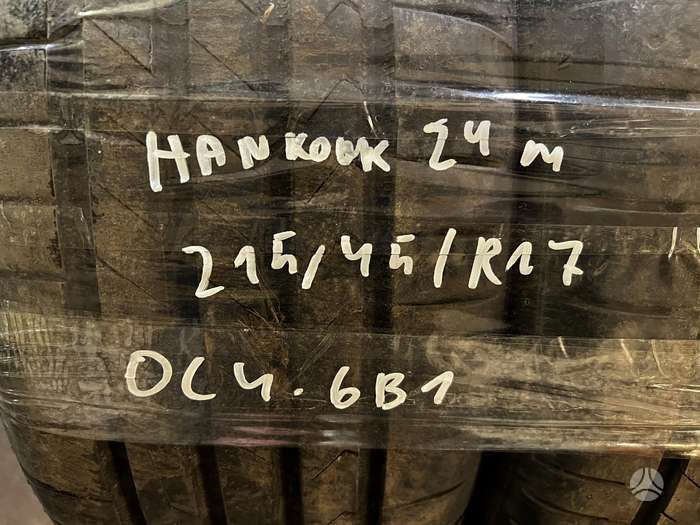 HANKOOK 24 m
215/45/R17
OC4.6B1